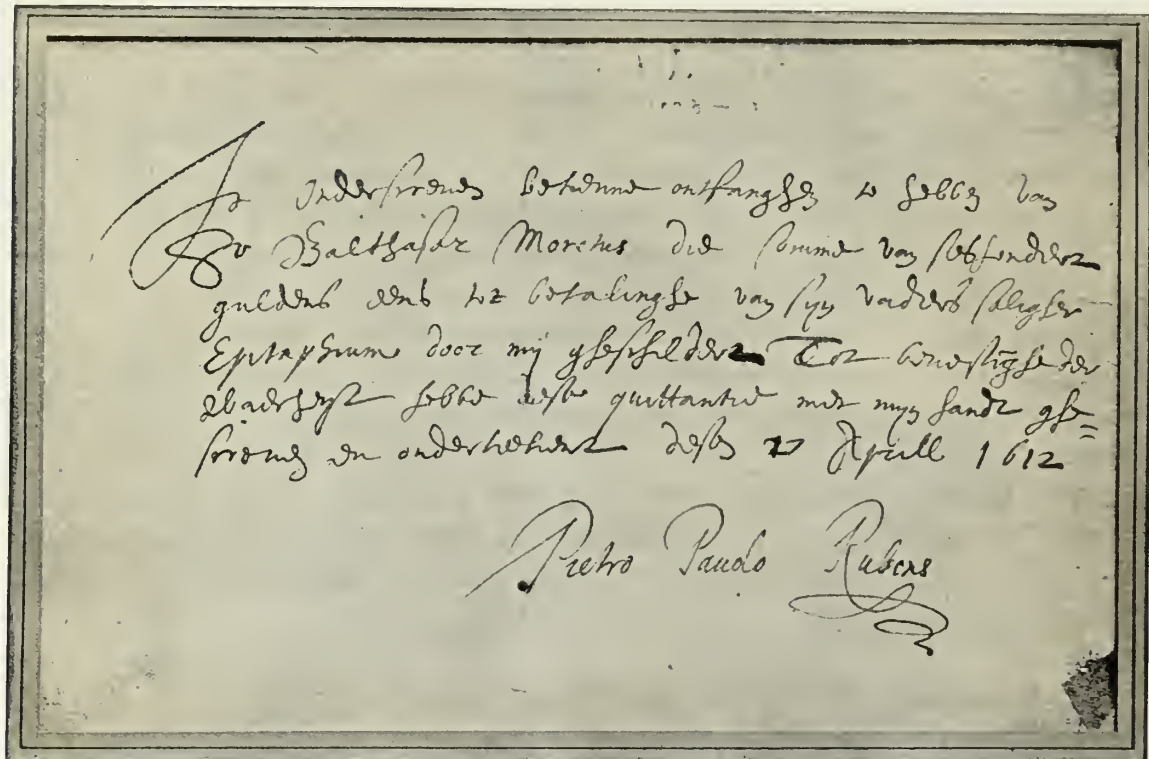 Ic onderscreven bekenne ontfanghen te hebben van
Sr Balthasar Moretus die somme van seshondert
guldens eens tot betalinghe van syn vaders saligher
Epitaphium door mij gheschildert Tot bevestighe der
Waerheyt hebbe dese quittantie met myn handt ghe=
screven en onderteekent desen 27 Aprill 1612
Pietro Pauolo Rubens